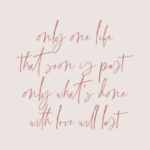 only one life
that soon is past
only what's done
with love will last